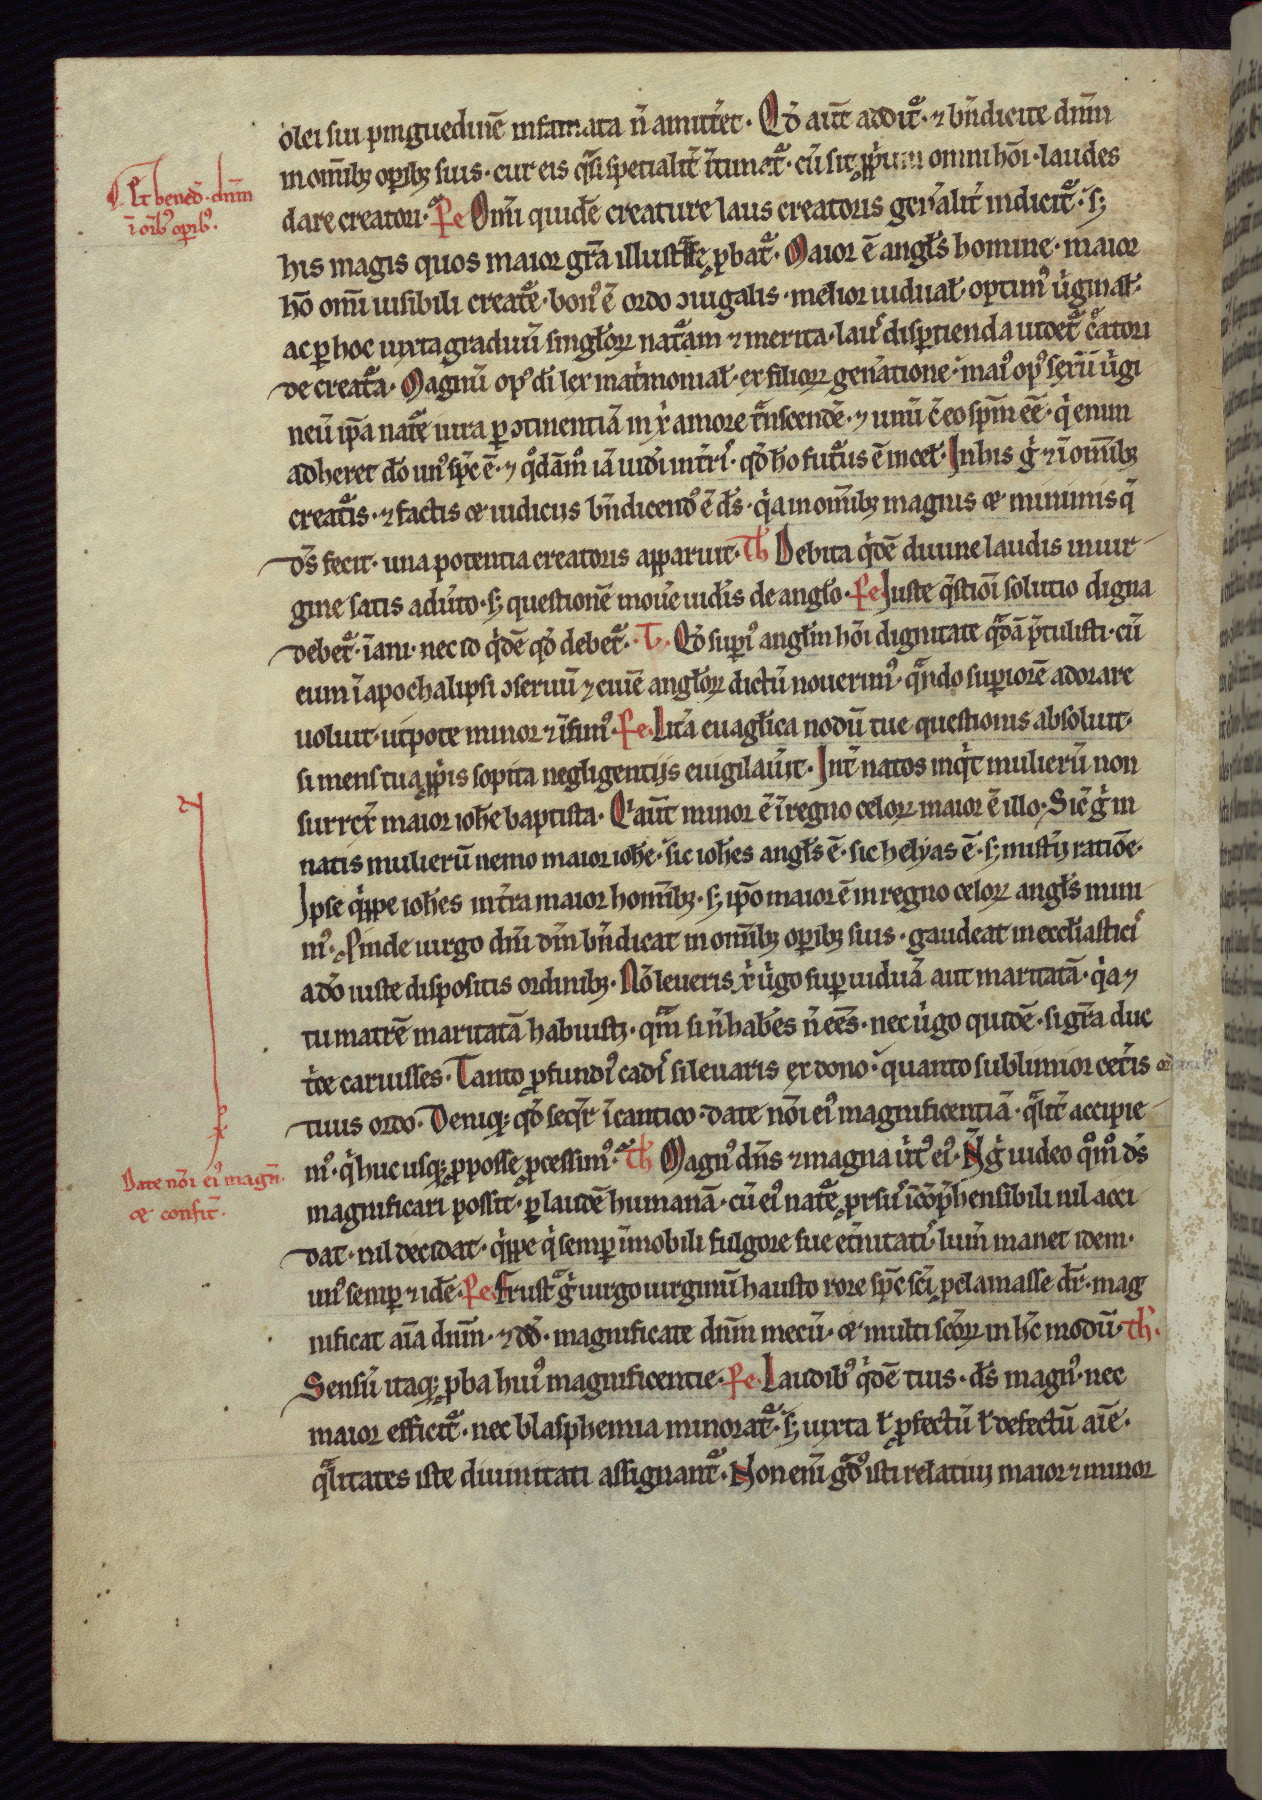 olei sui pinguedinē infamata n̄ amitt̄et. Qd̓ aūt addit᷑. ⁊ bn̄dicite dn̄m
in om̄ibꝫ oꝑibꝫ suis. cur eis q̓si specialit̄ cū sit ꝓp̓um omni hōi. laudes
Et bened̄. dn̄m
ī oīb᷒ oꝑib᷒.
dare creatori. Pe Om̄i quidē creature laus creatoris gen̄alit̄ indicit᷑. sꝫ
his magis quos maior gr̄a illustrasse ꝓbat᷑. Maior ē angl̄s homine. maior
hō om̄i uisibili creat᷑e. bon᷒ ē ordo ɔiugalis. melior uidual̄. optim᷒ u̓ginal̄.
ac ꝑ hoc iuxta graduū singl̄oꝝ nat᷑am ⁊ merita. lau᷒ disꝑtienda utdet᷑ c᷑atori
de creat᷑a. Magnū op᷒ di lex mat̓monial̄. ex filioꝝ gen̄atione. mai᷒ op᷒ u̓gi
neū ip̄a nat᷑e iura ꝑ ɔtinentiā in xp̄i amore t᷑nscendē. ⁊ unū cū eo sp̄m eē. q̓ enim
adheret dō un᷒ sp̄c ē. ⁊ q᷒dām᷒ iā uid̓i int̄ri. qd̓ hō fut᷑us ē in cel̄. In his g̓ ⁊ ī om̄ibꝫ
creat᷑is. ⁊ factis ⁊ iudiciis bn̄dicend᷒ ē d̄s. q̓a in om̄ibꝫ magnis ⁊ minimis q̄
d̄s fecit. una potentia creatoris apparuit. Th̄ Debita q̓dē diuine laudis in uir
gine satis aduerto. sꝫ questionē mou̓e uid̓is de angl̄o. Pe Iuste q̄stiōi solutio digna
debet᷑. īani. nec id q̓dē qd̓ debet᷑. T. Qd̓ suꝑi᷒ angl̄m hōi dignitate q᷑dā p̄tulisti. cū
eum ī apochalipsi ɔseruū ⁊ ciuē angl̄oꝝ dictū nouerim᷒. q᷑ndo suꝑiorē adorare
uoluit. utpote minor ⁊ īfim᷒. Pe. Litt̄a euagl̄ica nodū tue questionis absoluit.
si mens tua ꝓp̓is sopita negligentiis euigilau̓it. Int̄ natos inq̓t mulierū non
surrex̄ maior ioh̄e baptista. Q̓ aūt minor ē ī regno celoꝝ maior ē illo. Sic g̓ in
natis mulierū nemo maior ioh̄e. sic ioh̄es angl̄s ē. sic helyas ē. sꝫ mist̄ii ratiōe.
Ipse q̓ppe ioh̄es int̄ra maior hom̄ibꝫ. sꝫ ip̄o maior ē in regno celoꝝ angl̄s mini
m᷒. Proinde uirgo dn̄i dm̄ bn̄dicat in om̄ibꝫ oꝑibꝫ suis. gaudeat in eccl̄iastici᷒
a dō iuste dispositis ordinibꝫ. Nō leueris xp̄i u̓go suꝑ uiduā aut maritatā. q̓a ⁊
tu matrē maritatā habuisti. qm̄ si n̄ hab̄es n̄ eēs. nec u̓go quidē. si gr̄a duc
t̓ce caruisses. Tanto ꝓfundi᷒ cadi᷒ si leuaris ex dono. quanto sublimior cet̄is
tuus ordo. Deniqꝫ qd̓ seq̓t̄ ī cantico. date nōi ei᷒ magnificentiā. q᷑lit̄ accipie
m᷒. q̓ huc usqꝫ ꝓ posse ꝓcessim᷒. Th̄ Magn᷒ dn̄s ⁊ magna u̓t᷒ ei᷒. N̄ g̓ uideo q᷒m᷒ d̄s
Date nōi ei᷒ magn̄.
⁊ confit̄.
magnificari possit. ꝑ laudē humanā. cū ei᷒ nat᷑e prsu᷒ īcōp̄hensibili nil acci
dat. nil decidat. q̓ppe q̓ semꝑ īmobili fulgore sue et̄nitati᷒ lum̄ manet idem.
un᷒ semꝑ ⁊ idē. Pe. Frust᷑ g̓ uirgo uirginū hausto rore sp̄c sc̄i, ꝓclamasse dr̄. mag
nificat aīa dn̄m. ⁊ dd̓. magnificate dn̄m mecū. ⁊ multi sc̄oꝝ in h̄c modū. Th̄.
Sensū itaqꝫ ꝓba hui᷒ magnificentie. Pe. Laudib᷒ q̓dē tuis. d̄s magn᷒. nec
maior efficit᷑. nec blasphemia minorat᷑. sꝫ iuxta ł ꝓfectū ł defectū aīe.
q᷑litates iste diuinitati assignant᷑. Non enī g᷑d᷒ isti relatiui maior ⁊ minor